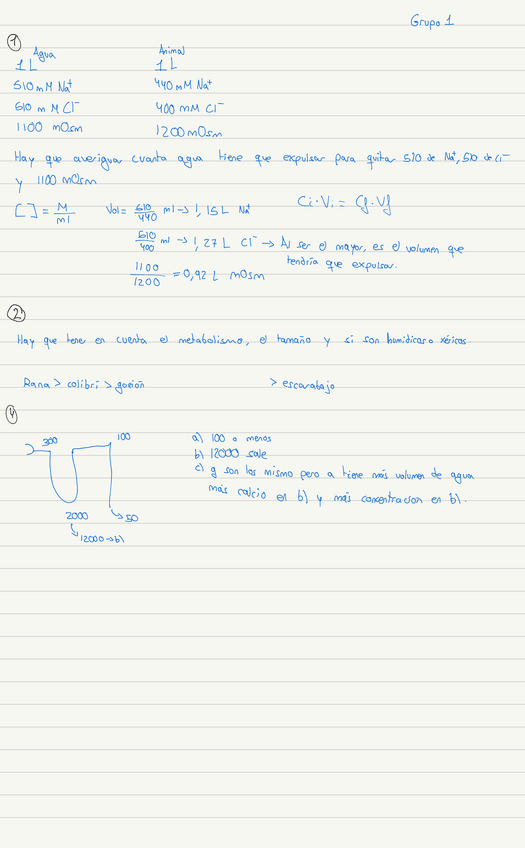 Grupo 1
1
Agua Animal
1 L 1 L
510 mM Na+ 440 mM Na+
510 m M Cl- 400 mM Cl-
1100 mOsm 1200 mOsm
Hay que averiguar cuanta agua tiene que expulsar para quitar 510 de Na+, 510 de Cl-
y 1100 mOsm
[ ] = M/ml Vol = 510/440 ml → 1,15 L Na+ Ci·Vi = Cf·Vf
510/400 ml → 1,27 L Cl- → Al ser el mayor, es el volumen que
tendría que expulsar.
1100/1200 = 0,92 L mOsm
2
Hay que tener en cuenta el metabolismo, el tamaño y si son humidicas o xéricos.
Rana > colibrí > gorrión > escarabajo
4
300 100
a) 100 o menos
b) 12000 sale
c) g son los mismo pero a tiene más volumen de agua
más calcio en b) y más concentracion en b).
2000 → 50
→ 12000 → b)